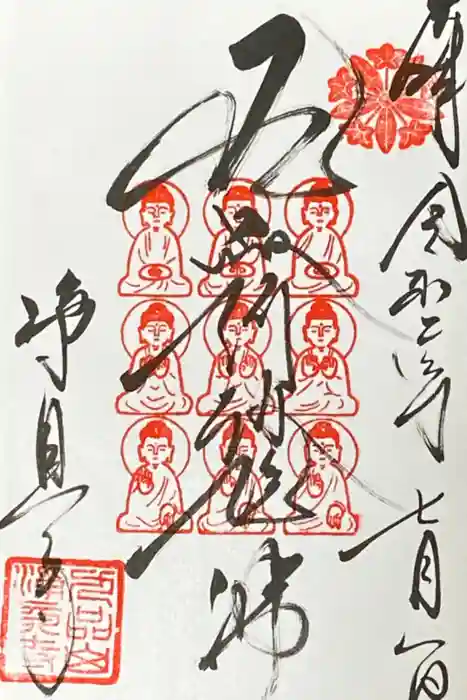 奉拝
令和二年
七月
南無阿弥陀佛
浄真寺
九品山
浄真寺